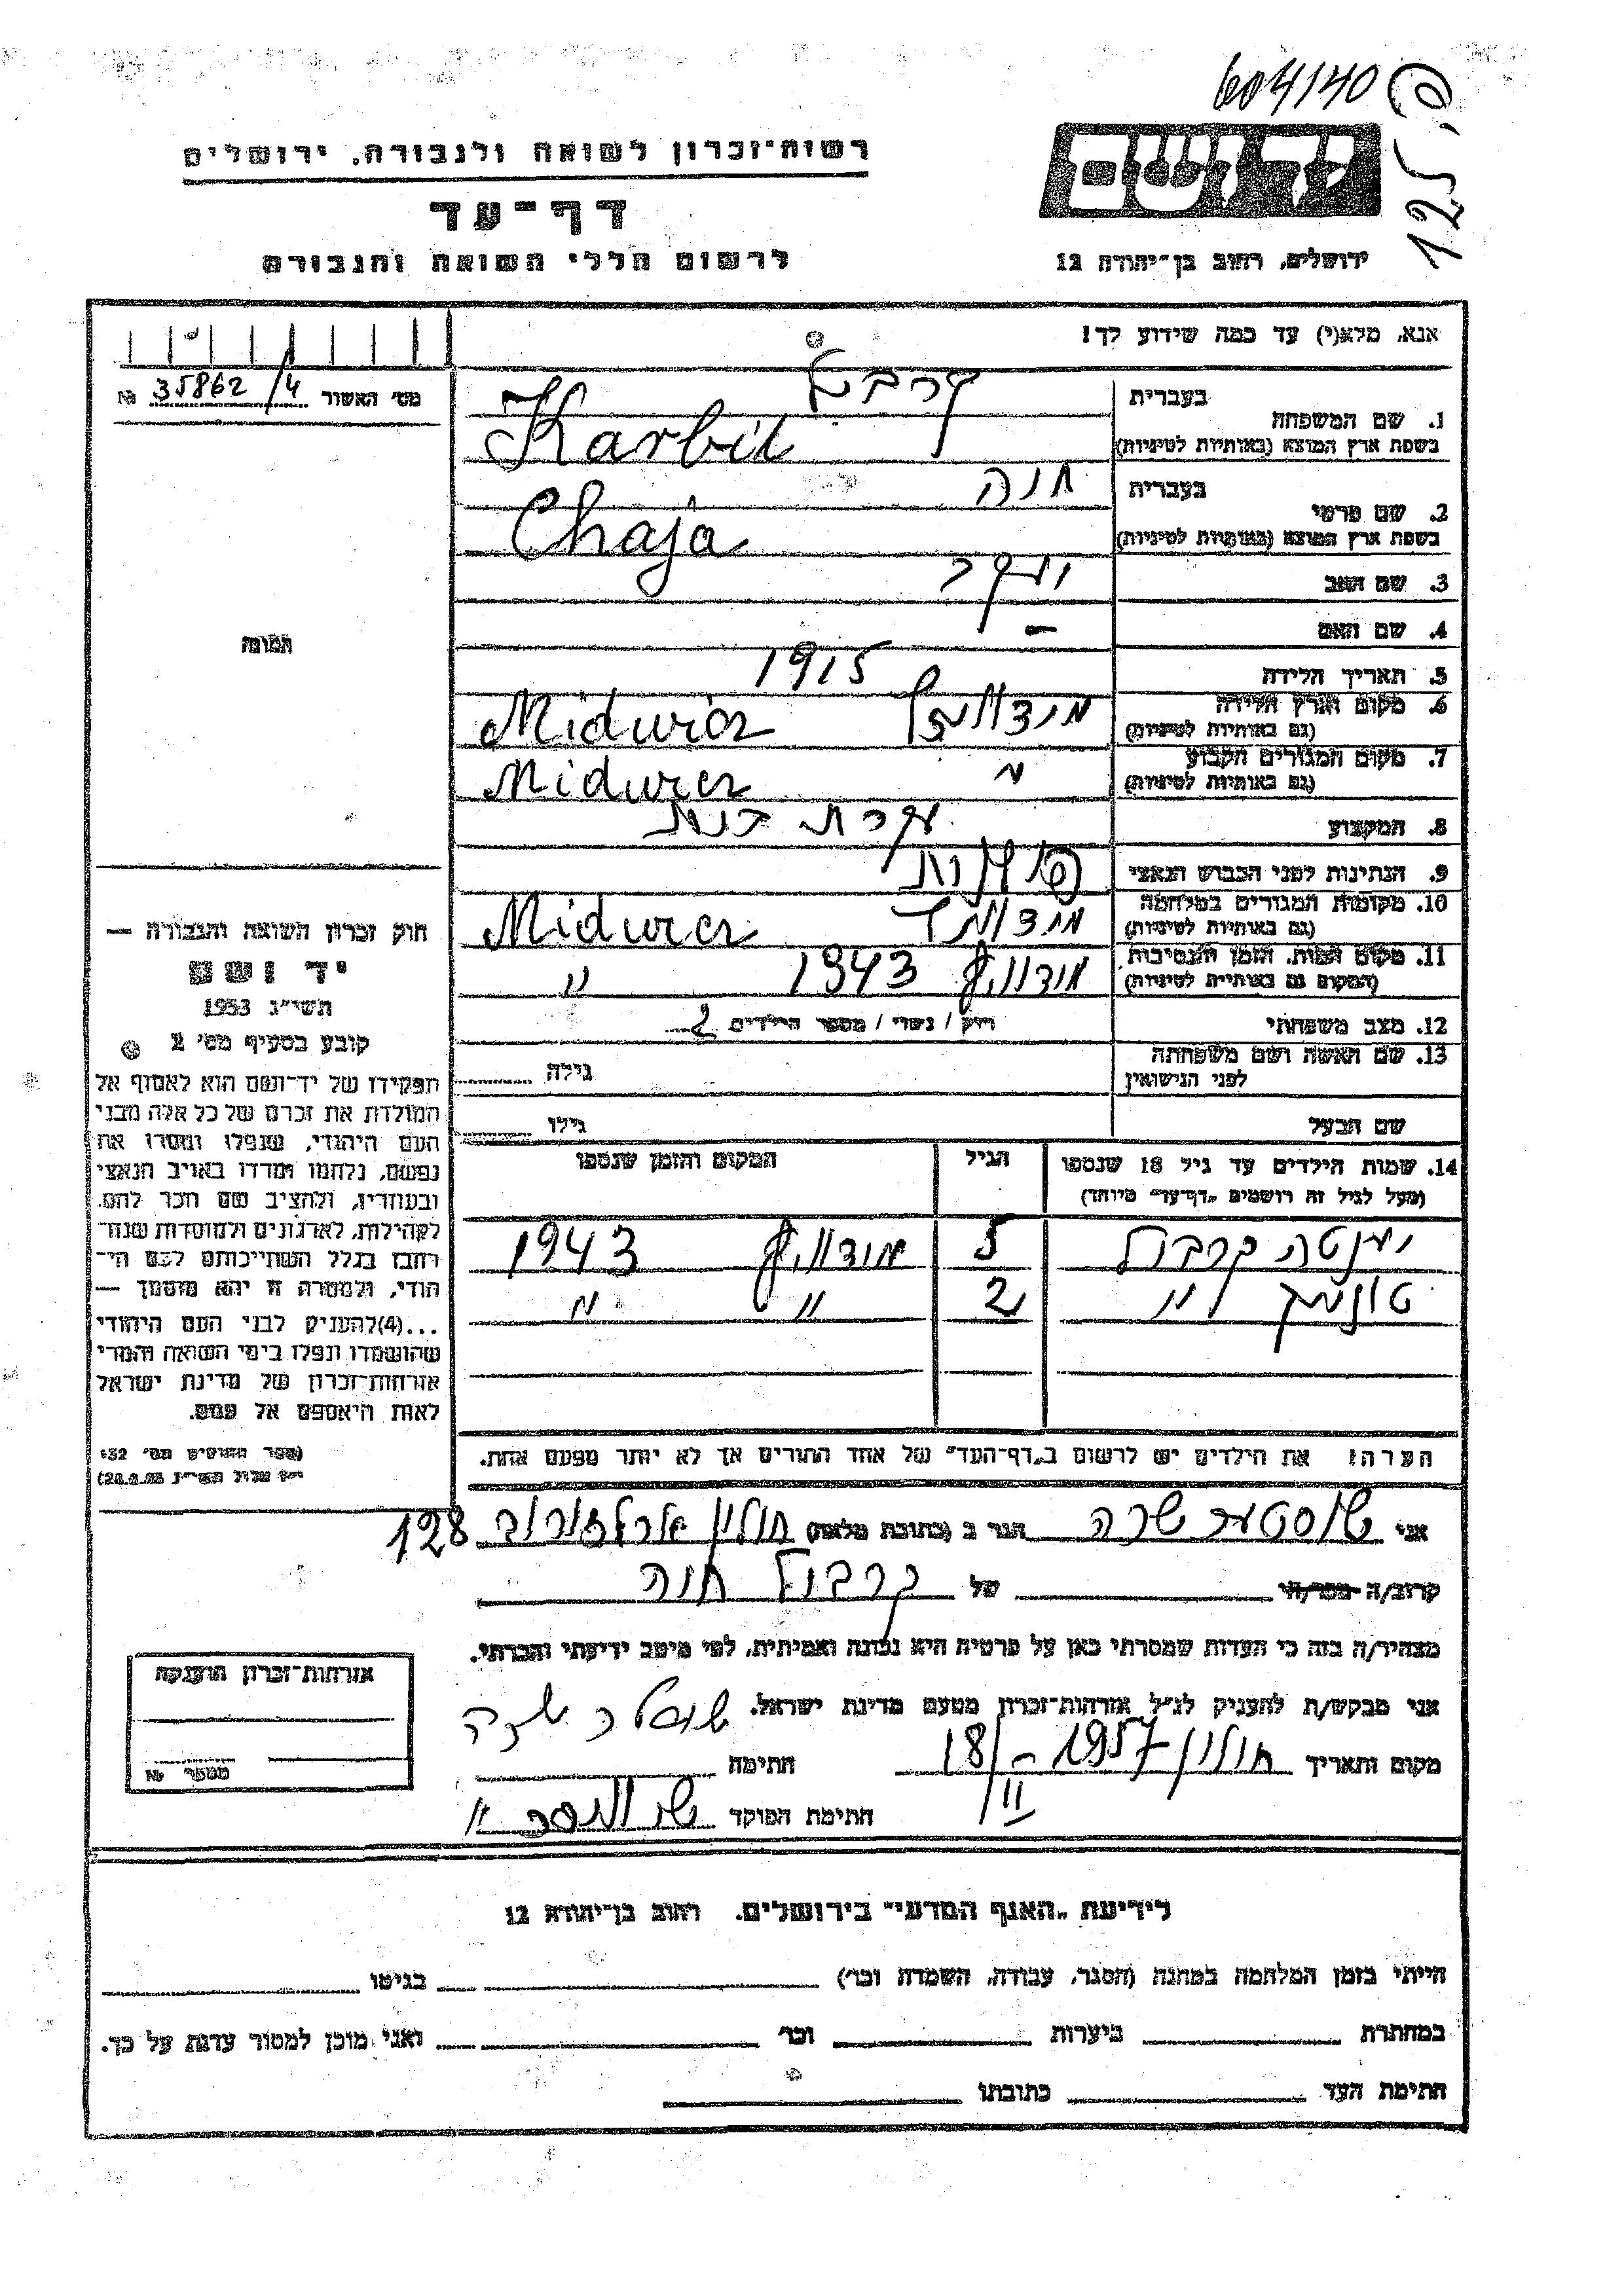 604140
125 פ.
רשות־זכרון לשואה ולגבורה, ירושלים
דף־עד
לרשום חללי השואה והגבורה
יד ושם
ירושלים, רחוב בן־יהודה 12
אנא, מלא(י) עד כמה שידוע לך!
מס' האשור 35862/4 №
1. שם המשפחה
בעברית קרביל
בשפת ארץ המוצא (באותיות לטיניות) Karbil
2. שם פרטי
בעברית חיה
בשפת ארץ המוצא (באותיות לטיניות) Chaja
3. שם האב
4. שם האם —
5. תאריך הלידה 1915
6. מקום וארץ הלידה
(גם באותיות לטיניות) Midurice
7. מקום המגורים הקבוע "
(גם באותיות לטיניות) Midurez
8. המקצוע עקרת בית
9. הנתינות לפני הכבוש הנאצי פולנית
10. מקומות המגורים במלחמה
(גם באותיות לטיניות) Midurez
11. מקום המות, הזמן והנסיבות 1943 "
(המקום גם באותיות לטיניות)
12. מצב משפחתי רווק / נשוי / מספר הילדים 2
13. שם האשה ושם משפחתה
לפני הנישואין גילה
שם הבעל גילו
14. שמות הילדים עד גיל 18 שנספו הגיל המקום והזמן שנספו
(מעל לגיל זה רושמים "דף־עד" מיוחד)
ינטה קרביל 5 1943
" 2 " "
הערה: את הילדים יש לרשום ב"דף־העד" של אחד ההורים אך לא יותר מפעם אחת.
התמונה
חוק זכרון השואה והגבורה —
יד ושם
תשי"ג 1953
קובע בסעיף מס' 2
תפקידו של יד־ושם הוא לאסוף אל
המולדת את זכרם של כל אלה מבני
העם היהודי, שנפלו ומסרו את
נפשם, נלחמו ומרדו באויב הנאצי
ובעוזריו, ולהציב שם וזכר להם,
לקהילות, לארגונים ולמוסדות שנח־
רבו בגלל השתייכותם לעם הי־
הודי, ולמטרה זו יהא מוסמך —
...(4)להעניק לבני העם היהודי
שהושמדו ונפלו בימי השואה והמרי
אזרחות־זכרון של מדינת ישראל
לאות היאספם אל עמם.
(ספר החוקים מס' 132
י"ז אלול תשי"ג 28.8.53)
אני שוסטער שרה הגר ב (כתובת מלאה) חולון ארלוזורוב 128
קרוב/ה מכר/תי של קרביל חיה
מצהיר/ה בזה כי העדות שמסרתי כאן על פרטיה היא נכונה ואמיתית, לפי מיטב ידיעתי והכרתי.
אני מבקש/ת להעניק לנ"ל אזרחות־זכרון מטעם מדינת ישראל.
מקום ותאריך חולון 18/II - 1957 חתימה שוסטר שרה
חתימת הפוקד
אזרחות־זכרון הוענקה
מספר №
לידיעת "האגף המדעי" בירושלים, רחוב בן־יהודה 12
הייתי בזמן המלחמה במחנה (הסגר, עבודה, השמדה וכו') בגיטו
במחתרת ביערות וכו' ואני מוכן למסור עדות על כך.
חתימת העד כתובתו